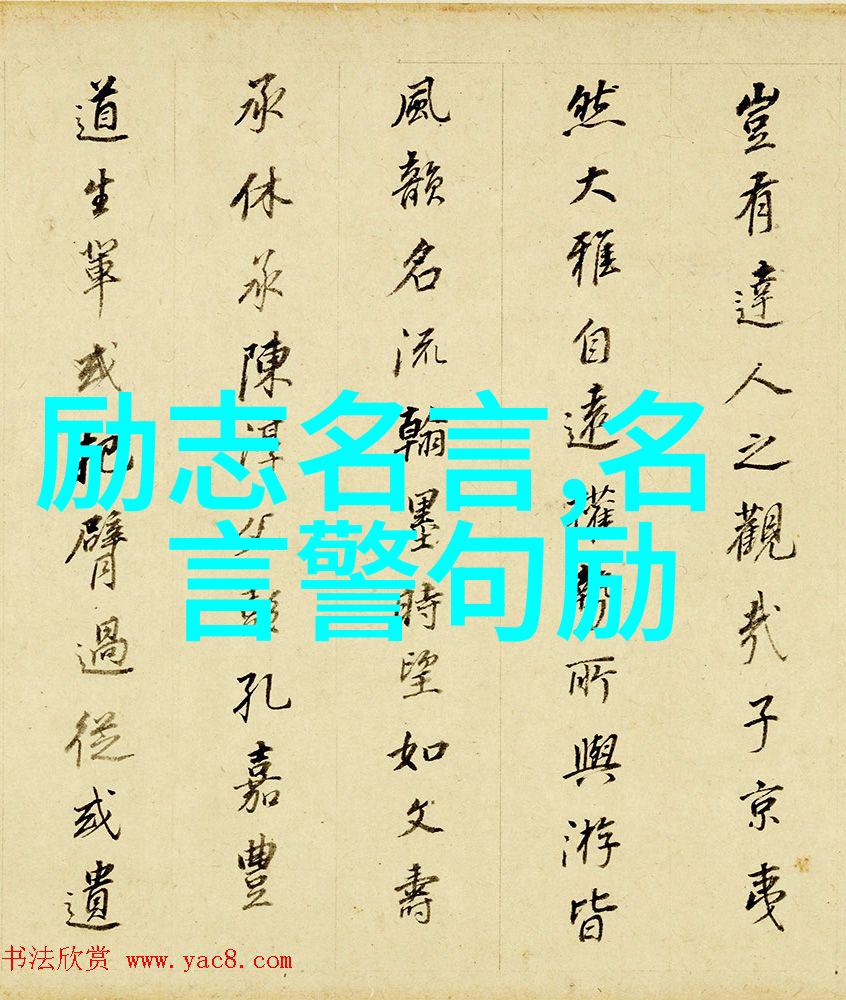 豈有達人之觀哉子京夷
然大雅自遠權勢所與游皆
風韻名流翰墨時望如文壽
承休承陳淳父彭孔嘉豐
道生軰或把臂過從或遺
励志名言,名
言警句励
书法欣赏 www.yac8.com